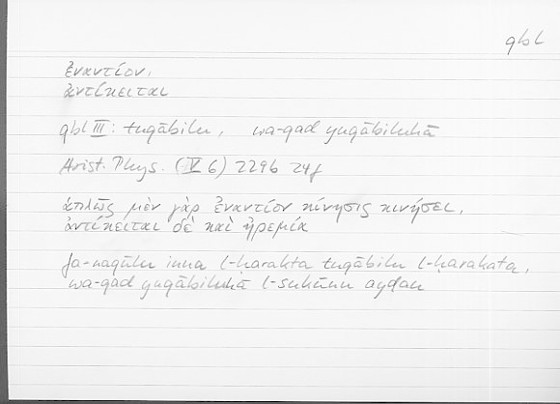 qbl
ἐναντίον,
ἀντίκειται
qbl III: tuqābilu, wa-qad yuqābiluhā
Arist. Phys. (V 6) 229b 24f
ἁπλῶς μὲν γὰρ ἐναντίον κίνησις κινήσει,
ἀντίκειται δὲ καὶ ἠρεμία
fa-naqūlu inna l-ḥarakta tuqābilu l-ḥarakata,
wa-qad yuqābiluhā l-sukūnu ayḍan